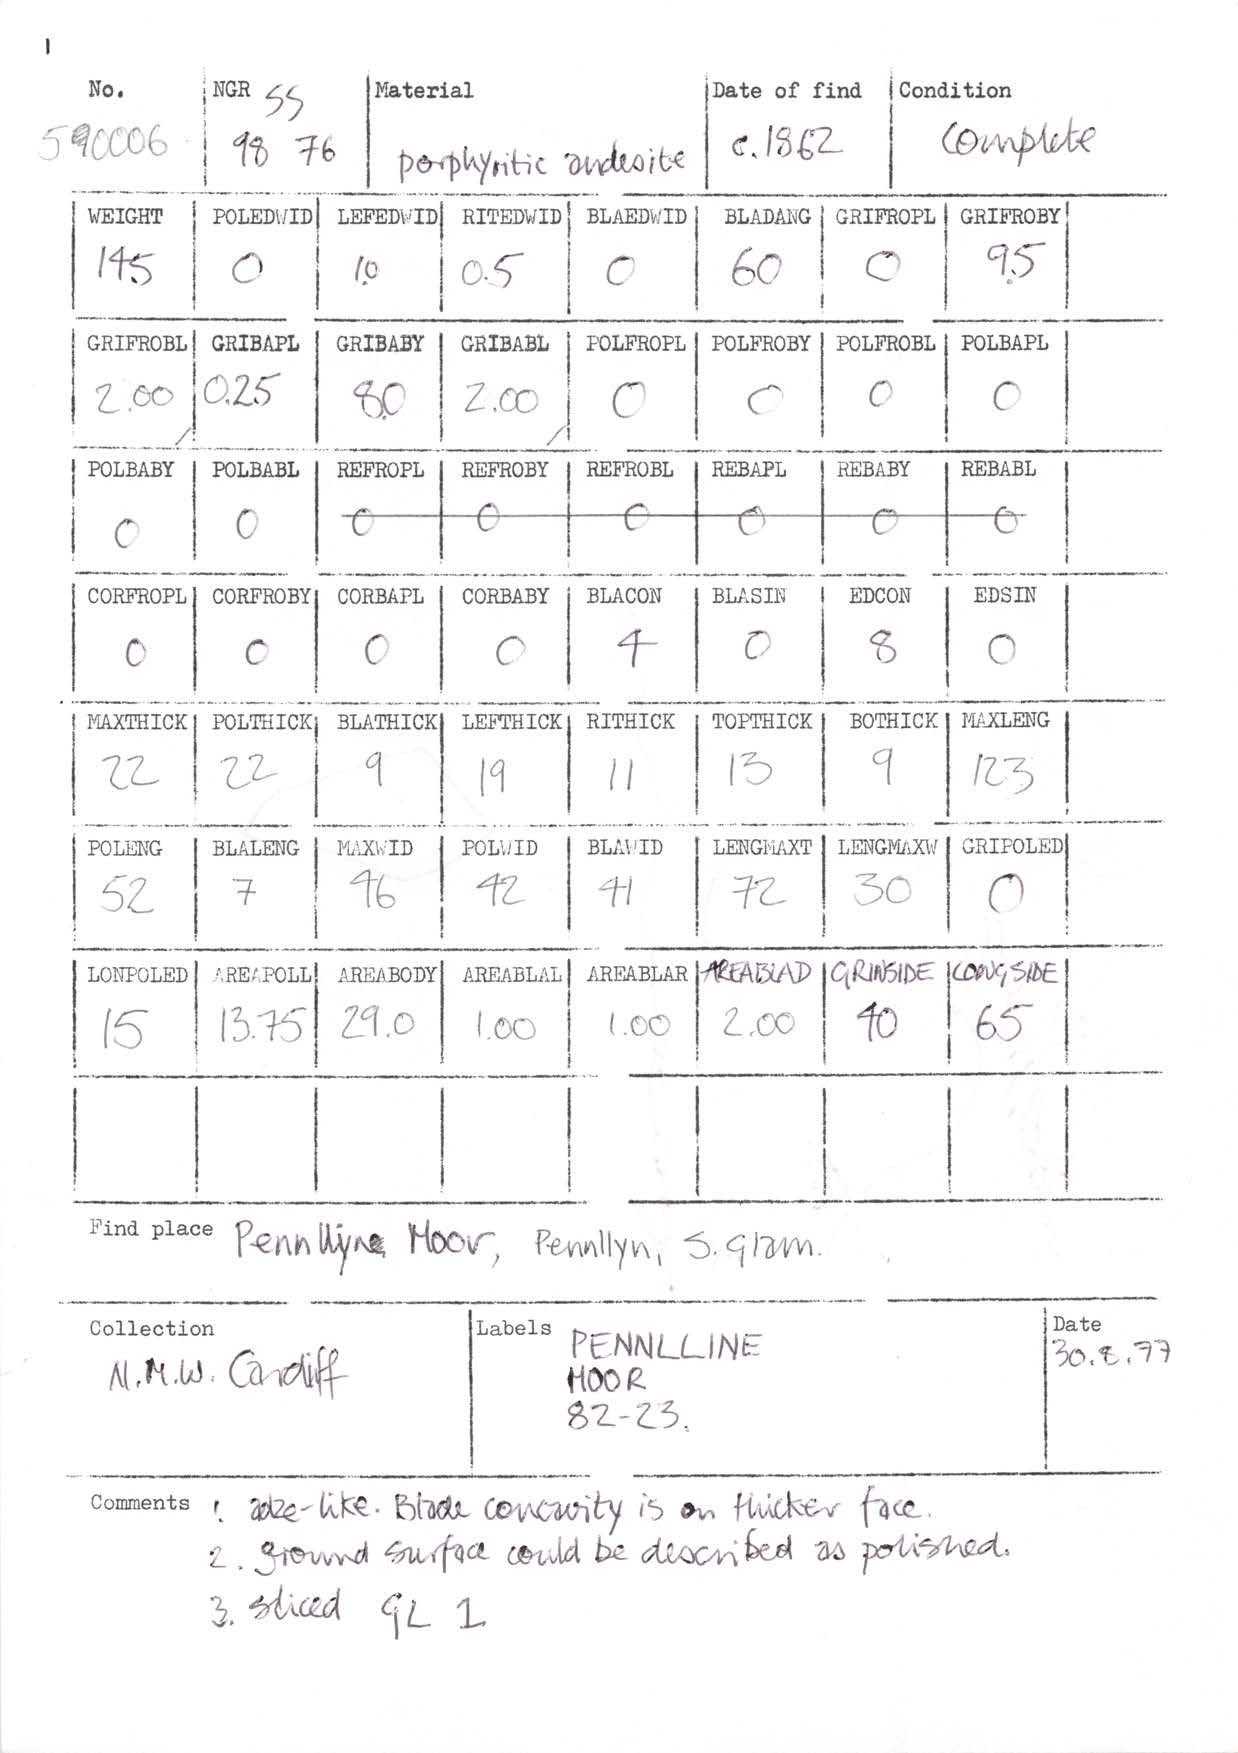 1
No. NGR SS Material Date of find Condition
590006 98 76 porphyritic andesite c.1862 Complete
WEIGHT POLEDWID LEFEDWID RITEDWID BLAEDWID BLADANG GRIFROPL GRIFROBY
145 0 1.0 0.5 0 60 0 9.5
GRIFROBL GRIBAPL GRIBABY GRIBABL POLFROPL POLFROBY POLFROBL POLBAPL
2.00 0.25 8.0 2.00 0 0 0 0
POLBABY POLBABL REFROPL REFROBY REFROBL REBAPL REBABY REBABL
0 0 0 0 0 0 0 0
CORFROPL CORFROBY CORBAPL CORBABY BLACON BLASIN EDCON EDSIN
0 0 0 0 4 0 8 0
MAXTHICK POLTHICK BLATHICK LEFTHICK RITHICK TOPTHICK BOTHICK MAXLENG
22 22 9 19 11 13 9 123
POLENG BLALENG MAXWID POLWID BLAWID LENGMAXT LENGMAXW GRIPOLED
52 7 46 42 41 72 30 0
LONPOLED AREAPOLL AREABODY AREABLAL AREABLAR AREABLAD GRINSIDE LONGSIDE
15 13.75 29.0 1.00 1.00 2.00 40 65
Find place Pennllyne Moor, Pennllyn, S. Glam.
Collection Labels PENNLLINE Date
N.M.W. Cardiff MOOR 30.8.77
82-23.
Comments 1. adze-like. Blade concavity is on thicker face.
2. ground surface could be described as polished.
3. sliced GL 1